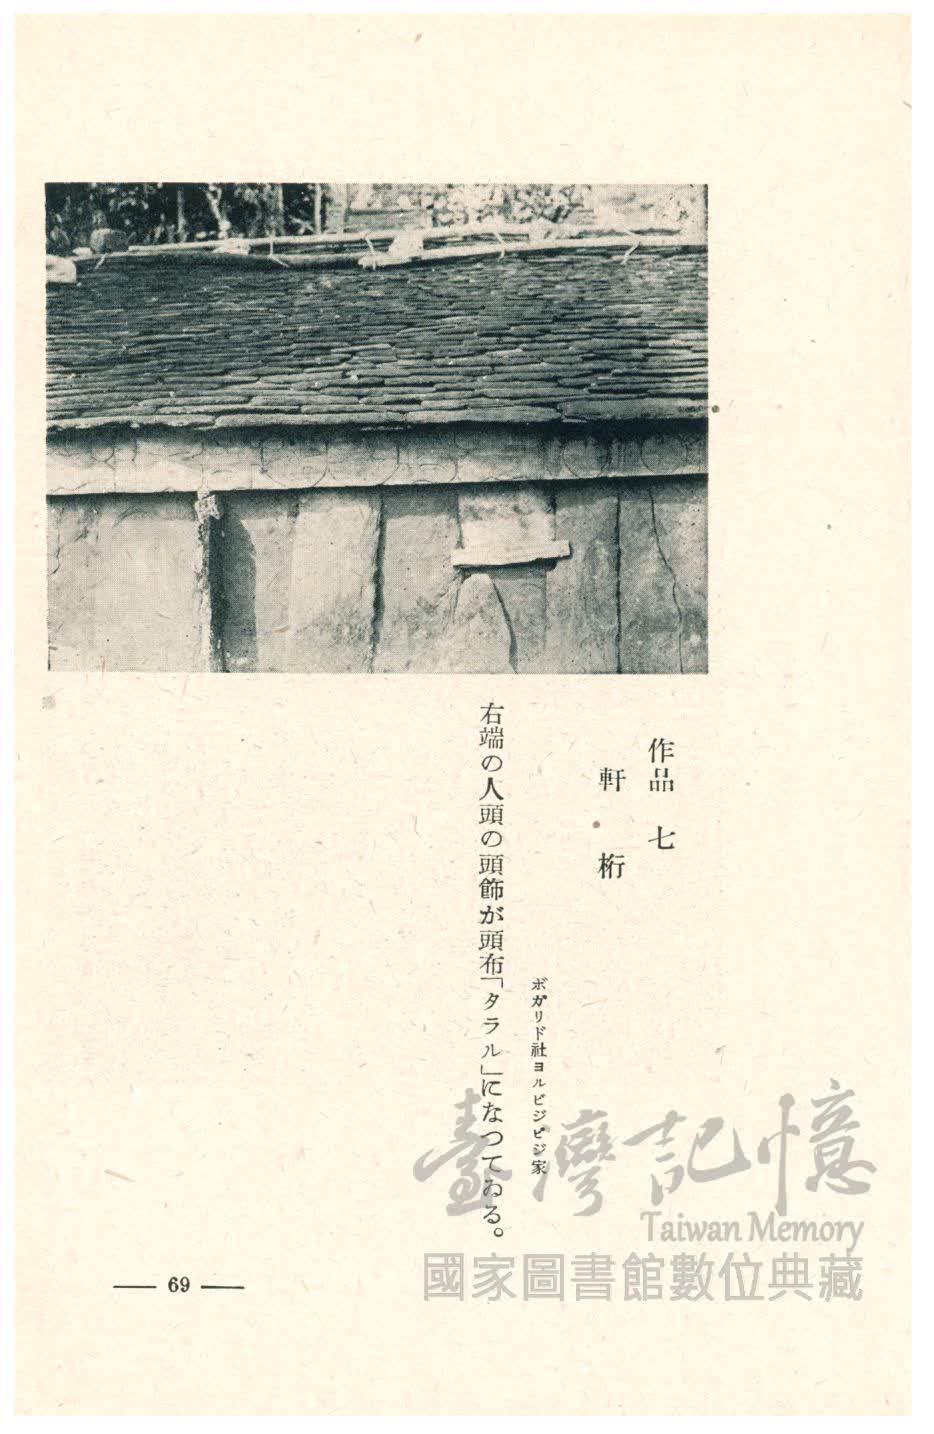 作品 七
軒桁
ボガリド社ヨルビジピジ家
右端の人頭の頭飾が頭布「タラル」になつてゐる。
— 69 —
臺灣記憶
Taiwan Memory
國家圖書館數位典藏